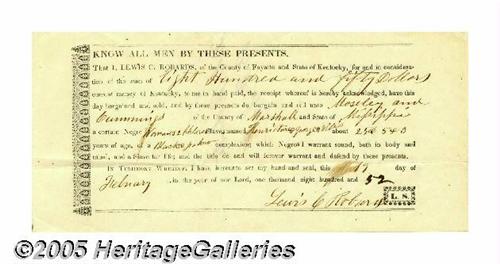 KNOW ALL MEN BY THESE PRESENTS,
That I, LEWIS C. ROBARDS, of the County of Fayette and State of Kentucky, for and in considera-
tion of the sum of Eight Hundred and fifty Dollars
current money of Kentucky, to me in hand paid, the receipt whereof is hereby acknowledged, have this
day bargained and sold, and by these presents do bargain and sell unto Moseley and
Cummings of the County of Marshall and State of Mississippi
a certain Negro slave, named about
years of, a Black complexion which Negro I warrant sound, both in body and
mind, and a Slave for life; and the title do and will forever warrant and defend by these presents.
IN TESTIMONY WHEREOF, I have hereunto set my hand and seal, this day of
February, in the year of our Lord, one thousand eight hundred and 52
Lewis C Robards L. S.
©2005 HeritageGalleries